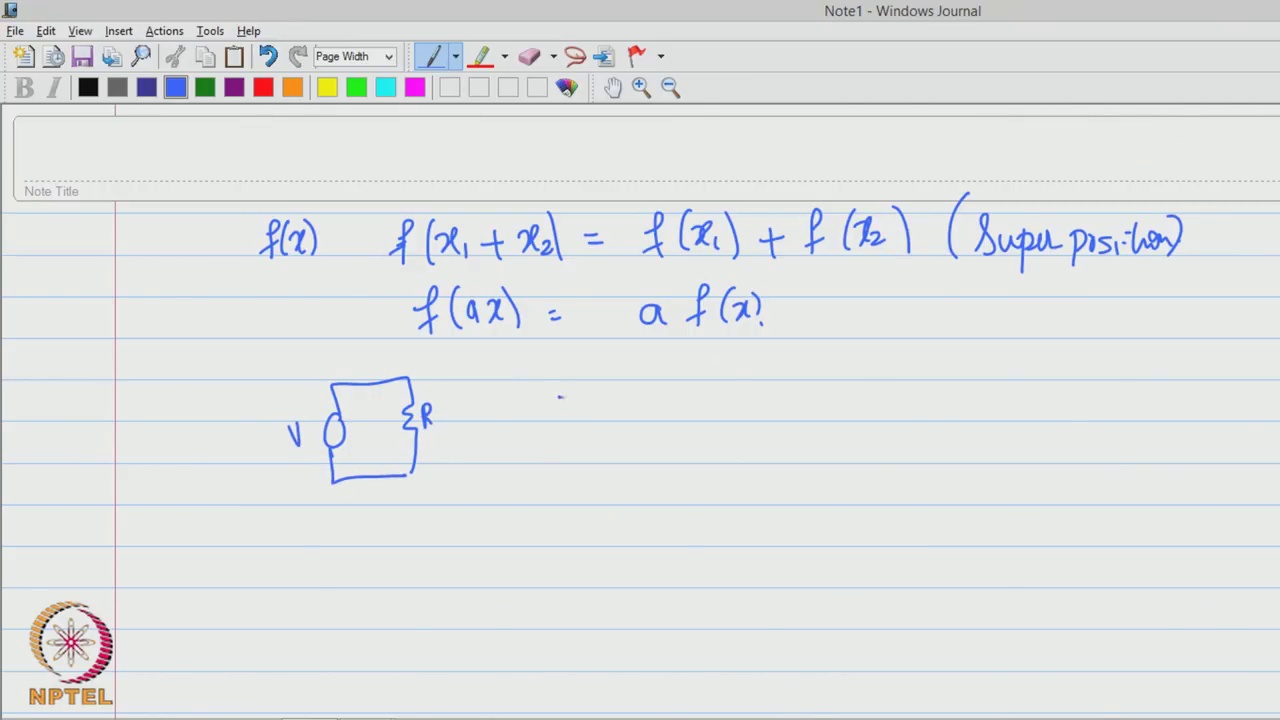 Note1 - Windows Journal
File Edit View Insert Actions Tools Help
Page Width
B I
Note Title
f(x) f(x₁ + x₂) = f(x₁) + f(x₂) (Superposition)
f(ax) = a f(x)
V R
NPTEL